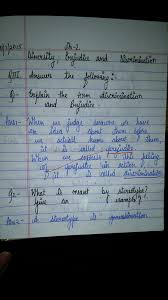 Ch-2
Diversity Prejudice and Discrimination
QIII Answer the following :-
Q1- Explain the term discrimination
and Prejudice.
Ans1- When we judge someone we have
an idea about them before
we actually know about them,
it is called prejudice.
When we express this feeling
of prejudice in action,
it is called discrimination.
Q2- What is meant by stereotype?
Give an example.
Ans2- A stereotype is generalisation